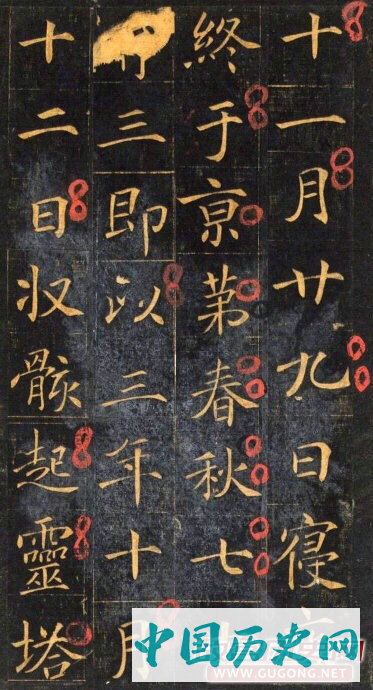 十一月廿九日寑
終于亰苐春秋七
三即以三年十月
十二日収骸起靈塔
中国历史网
WWW.GUGONG.NET